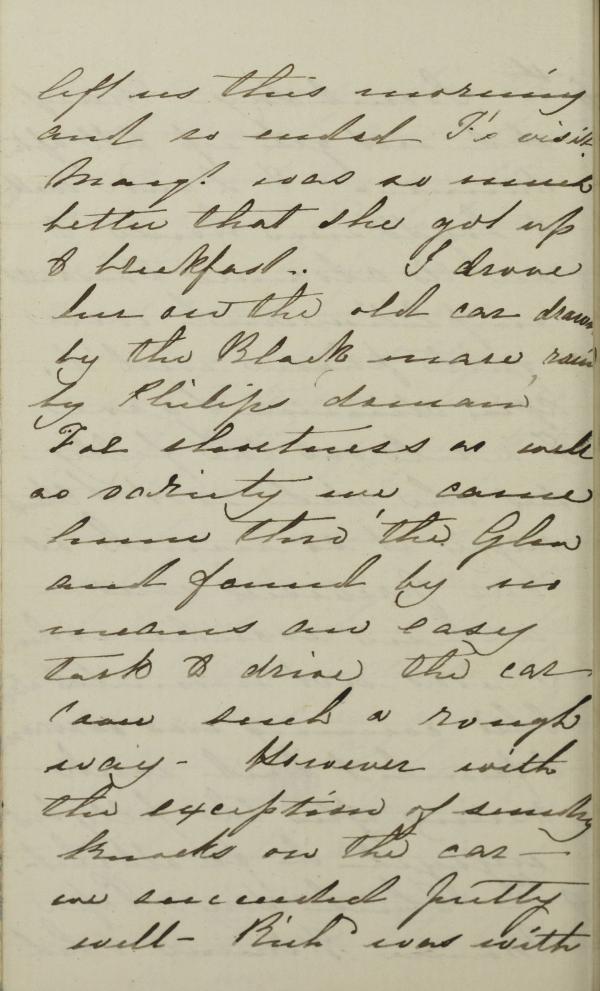 left us this morning
and so ended F's visit
Margt. was so much
better that she got up
to breakfast.. I drove
her on the old car drawn
by the Black mare
by Philips' domain
For shortness as well
as variety we came
home thro' the Glen
and found by no
means an easy
task to drive the car
over such a rough
way - However with
the exception of sundry
knocks on the car —
we succeeded pretty
well - Richd was with